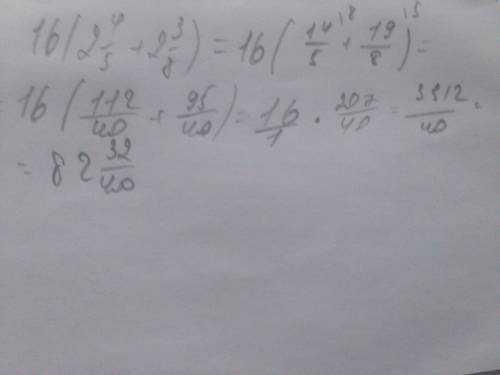 16(2 4/5 + 2 3/8) = 16(14/5 ^8 + 19/8 ^5) =
= 16(112/40 + 95/40) = 16/1 · 207/40 = 3312/40 =
= 82 32/40